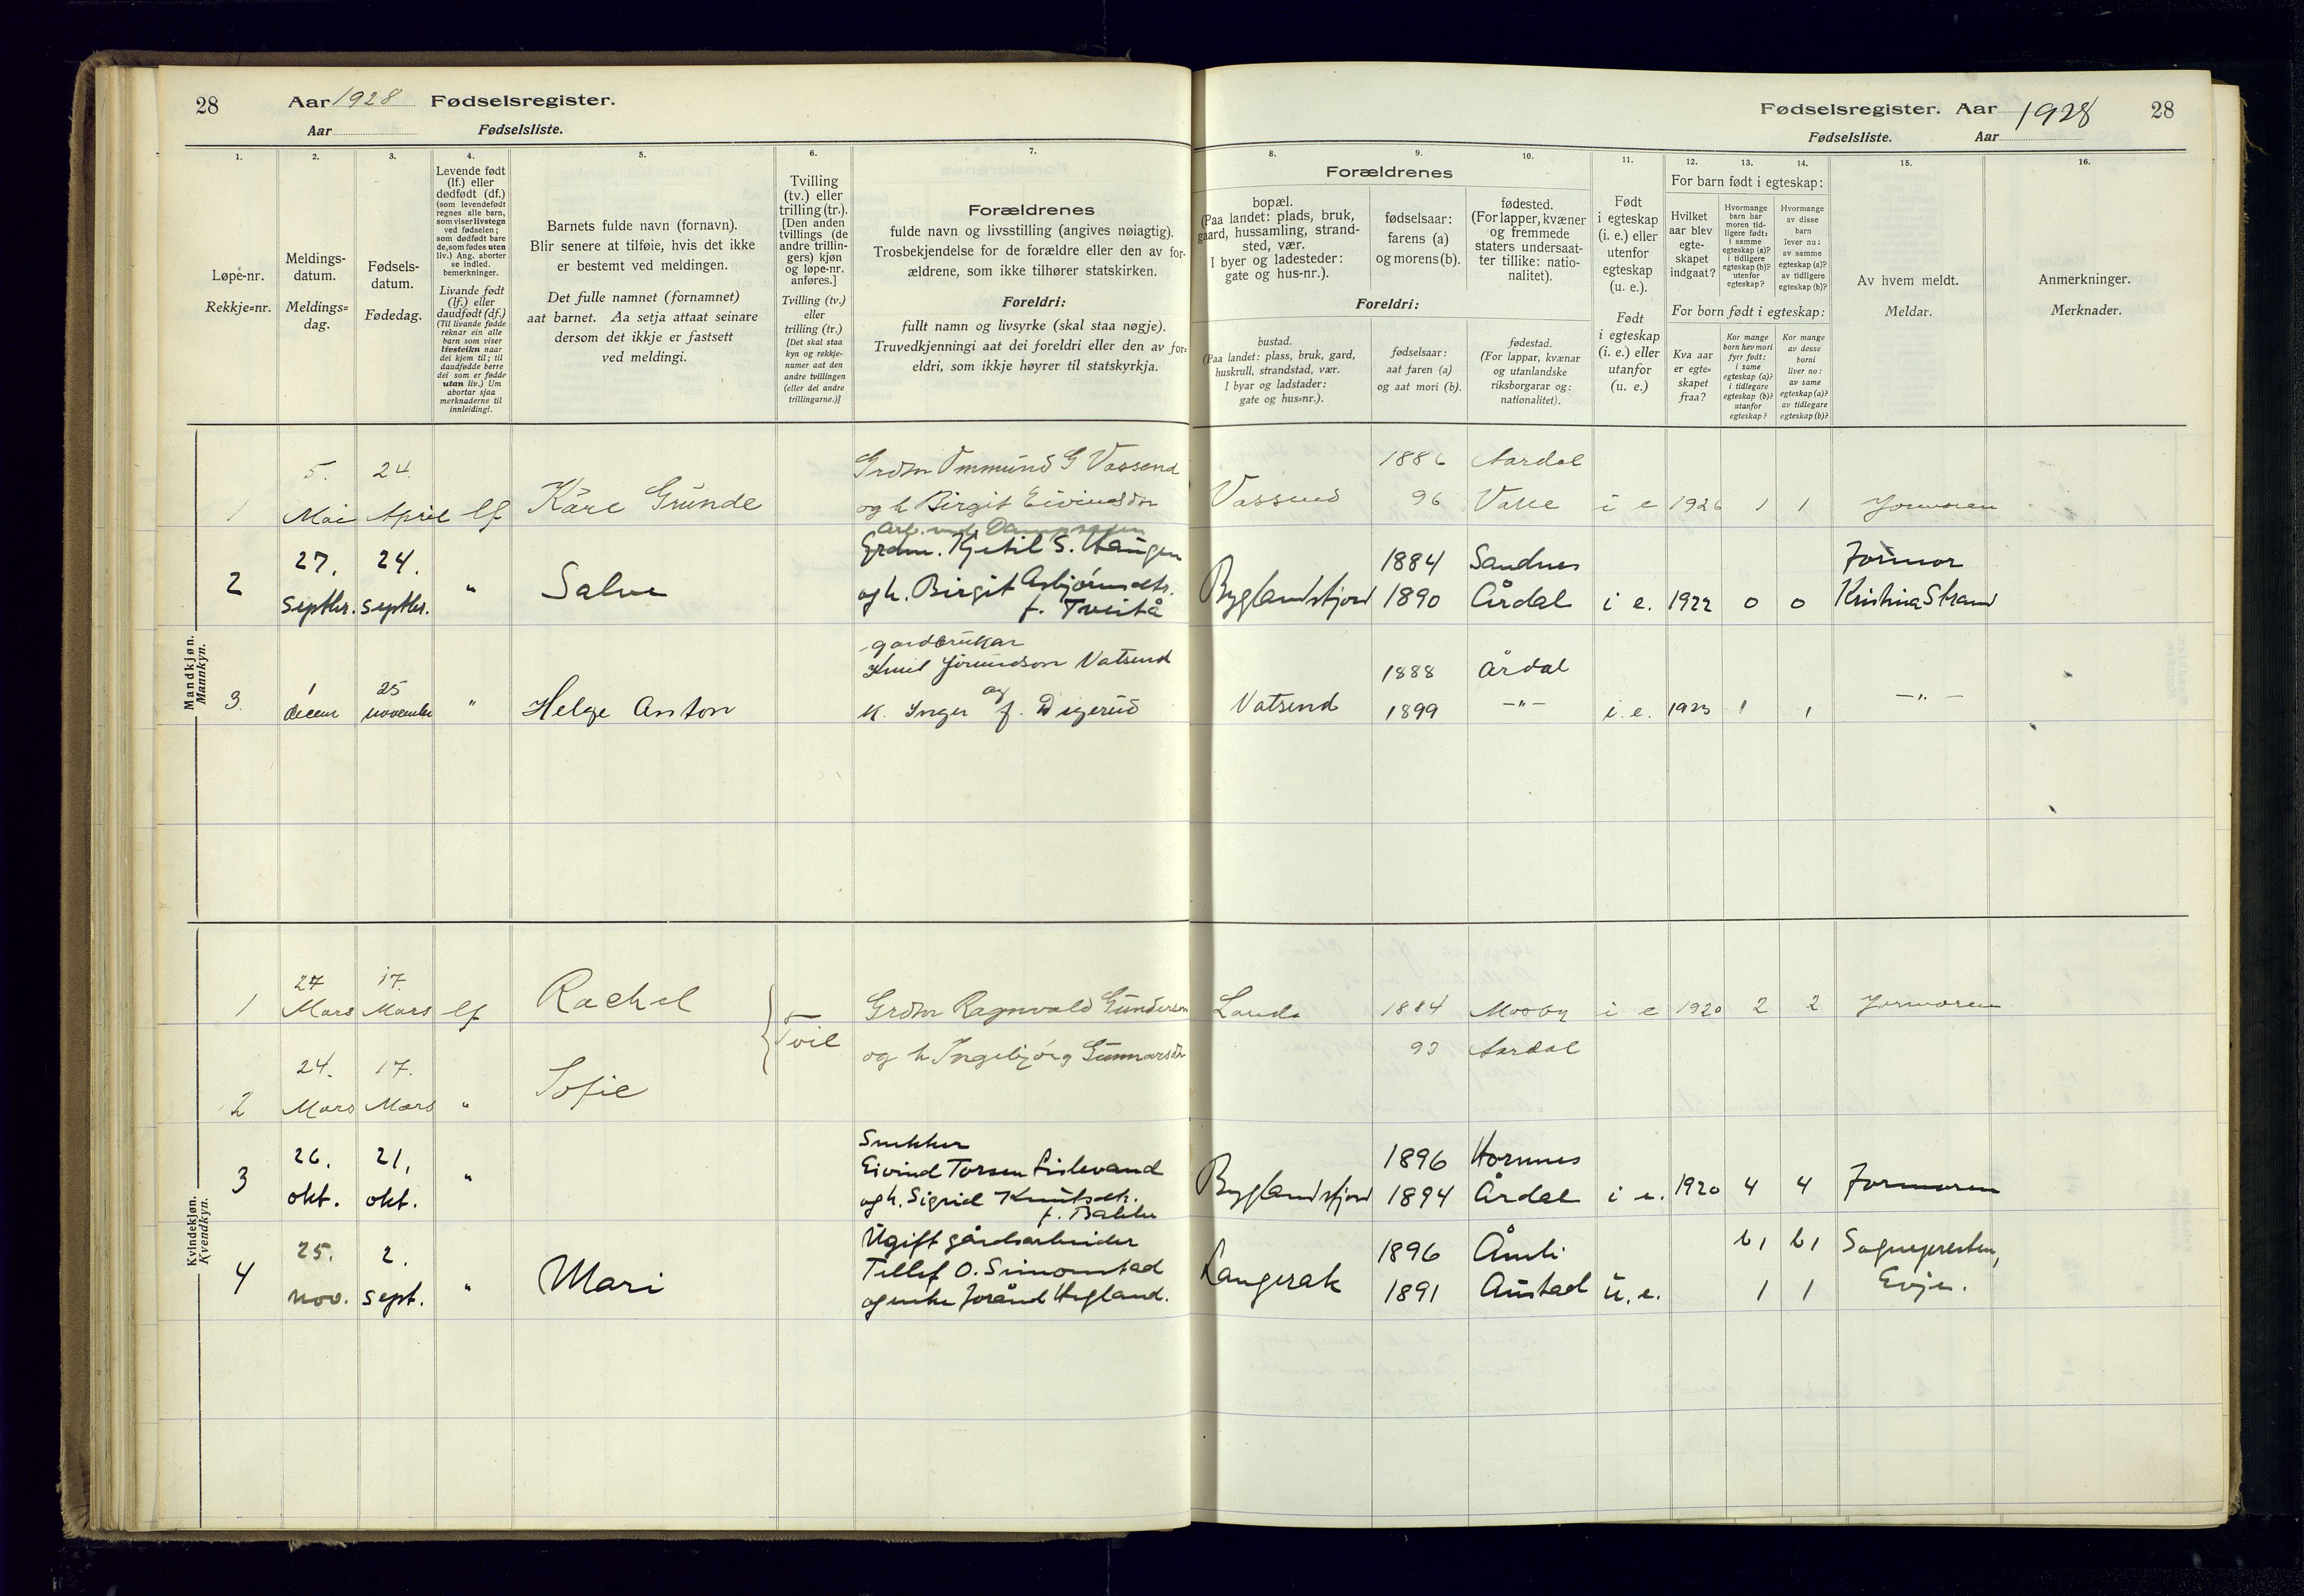 28 Aar 1928 Fødselsregister.
Aar Fødselsliste.
1.
Løpe-nr.
Rekkje=nr.
2.
Meldings-
datum.
Meldings=
dag.
3.
Fødsels-
datum.
Fødedag.
4.
Levende født
(lf.) eller
dødfødt (df.)
(som levendefødt
regnes alle barn,
som viser livstegn
ved fødselen;
som dødfødt bare
de, som fødes uten
liv.) Ang. aborter
se indled.
bemerkninger.
Livande født
(lf.) eller
daudfødt (df.)
(Til livande fødde
reknar ein alle
barn som viser
livsteikn naar
dei kjem til; til
daudfødde berre
dei som er fødde
utan liv.) Um
abortar sjaa
merknaderne til
innleidingi.
5.
Barnets fulde navn (fornavn).
Blir senere at tilføie, hvis det ikke
er bestemt ved meldingen.
Det fulle namnet (fornamnet)
aat barnet. Aa setja attaat seinare
dersom det ikkje er fastsett
ved meldingi.
6.
Tvilling
(tv.) eller
trilling (tr.).
[Den anden
tvillings (de
andre trillin-
gers) kjøn
og løpe-nr.
anføres.]
Tvilling (tv.)
eller
trilling (tr.)
[Det skal staa
kyn og rekkje-
numer aat den
andre tvillingen
(eller dei andre
trillingarne.)]
7.
Forældrenes
fulde navn og livsstilling (angives nøiagtig).
Trosbekjendelse for de forældre eller den av for-
ældrene, som ikke tilhører statskirken.
Foreldri:
fullt namn og livsyrke (skal staa nøgje).
Truvedkjenningi aat dei foreldri eller den av for=
eldri, som ikkje høyrer til statskyrkja.
Mandkjøn.
Mannkyn.
1 5. Mai 24. April lf Kåre Gunde
Grdm Ommund G Vassend
og h Birgit Eivindsdtr
2 27. septbr. 24. septbr. " Salve
Arb. ved Dampsagen
Grdm. Kjetil S. Haugen
og h. Birgit Asbjørnsdtr.
f. Tveitå
3 1 decem 25 november " Helge Anton
gardbrukar
Knut Jørundson Vatsend
og
k. Inger f. Digerud
Kvindekjøn.
Kvendkyn.
1 27 Mars 17. Mars lf Rachel Tvil
Grdm Ragnvald Gunderson
og h Ingebjörg Gunnarsdtr
2 24. Mars 17. Mars " Sofie
3 26. okt. 21. okt. "
Snekker
Eivind Torsen Lislevand
og h. Sigrid Knutsdtr.
f. Bakke
4 25. nov. 2. sept. " Mari
Ugift gårdsarbeider
Tellef O. Simonstad
og enke Jorånd Hegland.
Fødselsregister. Aar 1928 28
Fødselsliste. Aar
Forældrenes
8.
bopæl.
(Paa landet: plads, bruk,
gaard, hussamling, strand-
sted, vær.
I byer og ladesteder:
gate og hus-nr.).
Foreldri:
bustad.
(Paa landet: plass, bruk, gard,
huskrull, strandstad, vær.
I byar og ladstader:
gate og hus=nr.).
9.
fødselsaar:
farens (a)
og morens (b).
fødselsaar:
aat faren (a)
og aat mori (b).
10.
fødested.
(For lapper, kvæner
og fremmede
staters undersaat-
ter tillike: natio-
nalitet).
fødestad.
(For lappar, kvænar
og utanlandske
riksborgarar og:
nationalitet).
11.
Født
i egteskap
(i. e.) eller
utenfor
egteskap
(u. e.).
Født
i egteskap
(i. e.) eller
utanfor
(u. e.)
For barn født i egteskap:
12.
Hvilket
aar blev
egte-
skapet
indgaat?
For born født i egteskap:
Kva aar
er egte=
skapet
fraa?
13.
Hvormange
barn har
moren tid-
ligere født:
i samme
egteskap (a)?
i tidligere
egteskap (b)?
utenfor
egteskap?
Kor mange
born hev mori
fyrr født:
i same
egteskap (a)?
i tidlegare
egteskap (b)?
utanfor
egteskap?
14.
Hvormange
av disse
barn
lever nu:
av samme
egteskap (a)?
av tidligere
egteskap (b)?
Kor mange
av desse
borni
liver no:
av same
egteskap (a)?
av tidlegare
egteskap (b)?
15.
Av hvem meldt.
Meldar.
16.
Anmerkninger.
Merknader.
1886 Aardal
Vassend 96 Valle i e 1926 1 1 Jormoren
1884 Sandnes Jormor
Byglandsfjord 1890 Årdal i e. 1922 0 0 Kristina Strand
1888 Årdal
Vatsend 1899 —"— i. e. 1923 1 1 —"—
Landa 1884 Mosby i e 1920 2 2 Jormoren
93 Aardal
1896 Hornnes
Byglandsfjord 1894 Årdal i e. 1920 4 4 Jormoren
1896 Åmli b 1 b 1 Sognepresten,
Langerak 1891 Austad u. e. 1 1 Evje.